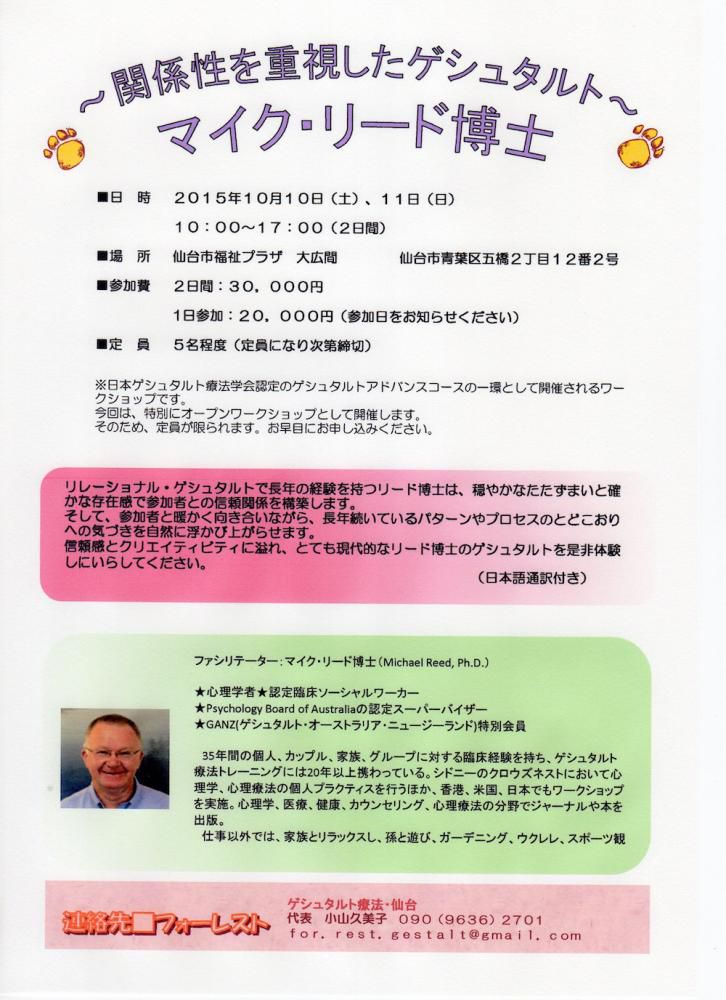 ～関係性を重視したゲシュタルト～
マイク・リード博士
■日　時　２０１５年１０月１０日（土）、１１日（日）
１０：００～１７：００（２日間）
■場　所　仙台市福祉プラザ　大広間　　　仙台市青葉区五橋２丁目１２番２号
■参加費　２日間：３０，０００円
１日参加：２０，０００円（参加日をお知らせください）
■定　員　５名程度（定員になり次第締切）
※日本ゲシュタルト療法学会認定のゲシュタルトアドバンスコースの一環として開催されるワー
クショップです。
今回は、特別にオープンワークショップとして開催します。
そのため、定員が限られます。お早目にお申し込みください。
リレーショナル・ゲシュタルトで長年の経験を持つリード博士は、穏やかなたたずまいと確
かな存在感で参加者との信頼関係を構築します。
そして、参加者と暖かく向き合いながら、長年続いているパターンやプロセスのとどこおり
への気づきを自然に浮かび上がらせます。
信頼感とクリエイティビティに溢れ、とても現代的なリード博士のゲシュタルトを是非体験
しにいらしてください。
（日本語通訳付き）
ファシリテーター：マイク・リード博士（Michael Reed, Ph.D.）
★心理学者★認定臨床ソーシャルワーカー
★Psychology Board of Australiaの認定スーパーバイザー
★GANZ(ゲシュタルト・オーストラリア・ニュージーランド)特別会員
35年間の個人、カップル、家族、グループに対する臨床経験を持ち、ゲシュタルト
療法トレーニングには20年以上携わっている。シドニーのクロウズネストにおいて心
理学、心理療法の個人プラクティスを行うほか、香港、米国、日本でもワークショップ
を実施。心理学、医療、健康、カウンセリング、心理療法の分野でジャーナルや本を
出版。
仕事以外では、家族とリラックスし、孫と遊び、ガーデニング、ウクレレ、スポーツ観
連絡先■フォーレスト
ゲシュタルト療法・仙台
代表　小山久美子　０９０（９６３６）２７０１
ｆｏｒ．ｒｅｓｔ．ｇｅｓｔａｌｔ@ｇｍａｉｌ．ｃｏｍ